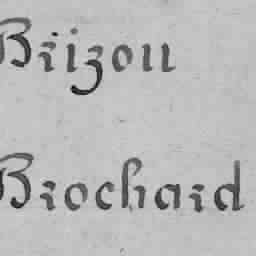 Brizou
Brochard